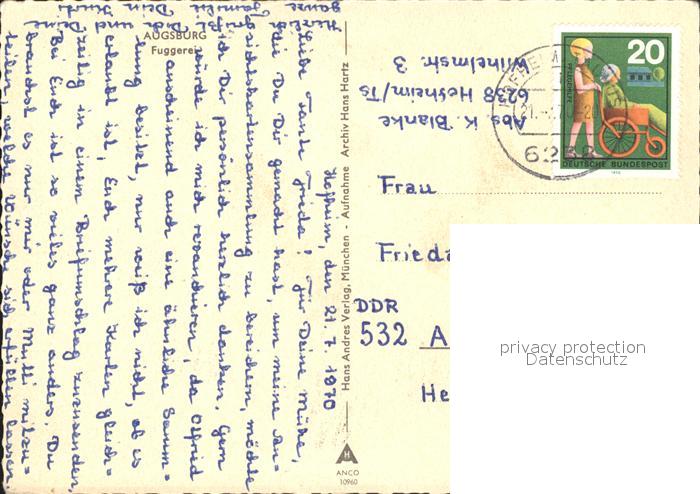 AUGSBURG
Fuggerei
Hofheim, den 21. 7. 1970
Liebe Tante Frieda! Für Deine Mühe,
die Du Dir gemacht hast, um meine An=
sichtskartensammlung zu bereichern, möchte
ich Dir persönlich herzlich danken. Gern
würde ich mich revanchieren, da Otfried
anscheinend auch eine ähnliche Samm=
lung besitzt, nur weiß ich nicht, ob es
erlaubt ist, Euch mehrere Karten gleich=
zeitig in einem Briefumschlag zuzusenden.
Bei Euch ist so vieles ganz anders. Du
brauchst es nur mir oder Mutti mitzu=
teilen, welche Wünsche sich erfüllen lassen.
Herzlich grüßt Dich und Deine
ganze Familie Dein
Hans Andres Verlag, München - Aufnahme Archiv Hans Hartz
ANCO
10960
Abs. K. Blanke
6238 Hofheim/Ts
Wilhelmstr. 3
20
PFLEGEHILFE
DEUTSCHE BUNDESPOST
1970
HOFHEIM
6238
Frau
Frieda
DDR
532 A
He
privacy protection
Datenschutz